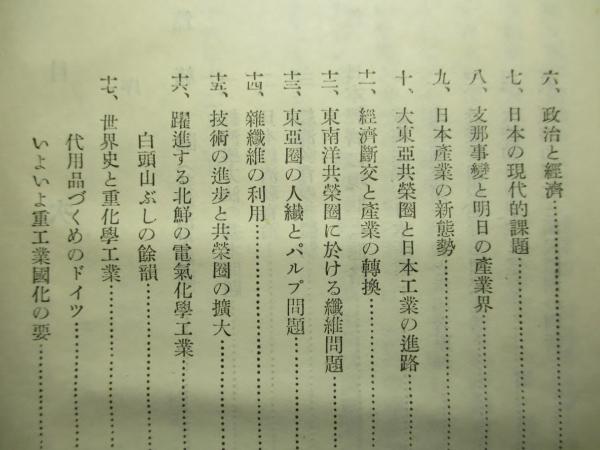 六、政治と經濟……………
七、日本の現代的課題……………
八、支那事變と明日の產業界……………
九、日本產業の新態勢……………
十、大東亞共榮圈と日本工業の進路……………
十一、經濟斷交と產業の轉換……………
十二、東南洋共榮圈に於ける纖維問題……………
十三、東亞圈の人纎とパルプ問題……………
十四、雜纖維の利用……………
十五、技術の進步と共榮圈の擴大……………
十六、躍進する北鮮の電氣化學工業……………
白頭山ぶしの餘韻……………
十七、世界史と重化學工業……………
代用品づくめのドイツ……………
いよいよ重工業國化の要……………